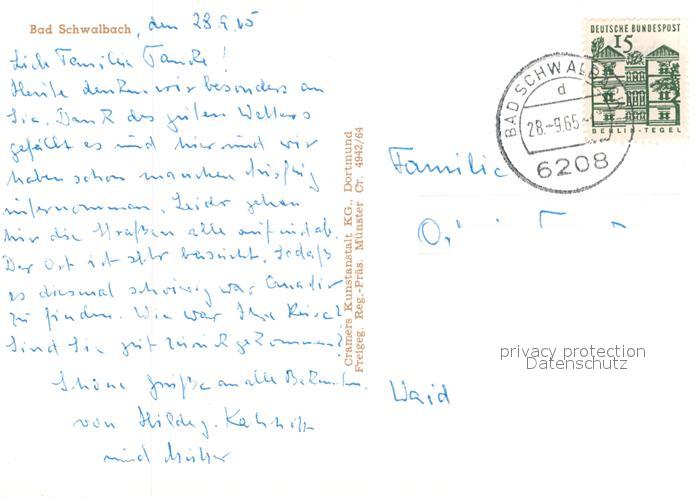 Bad Schwalbach, den 28.9.65
Liebe Familie
Heute denken wir besonders an
Sie. Dank des guten Wetters
gefällt es uns hier und wir
haben schon manchen Ausflug
unternommen. Leider gehen
hier die Straßen alle auf und ab.
Der Ort ist sehr besucht, sodaß
es diesmal schwierig war Quartier
zu finden. Wie war Ihre Reise?
Sind Sie gut zurückgekommen?
Schöne Grüße an alle Bekannten
von Hildeg.
und Mutter
Cramers Kunstanstalt KG., Dortmund
Freigeg. Reg.-Präs. Münster Cr. 4942/64
DEUTSCHE BUNDESPOST
15
BERLIN-TEGEL
BAD SCHWALBACH
d
28.-9.65
6208
Familie
privacy protection
Datenschutz
Waid